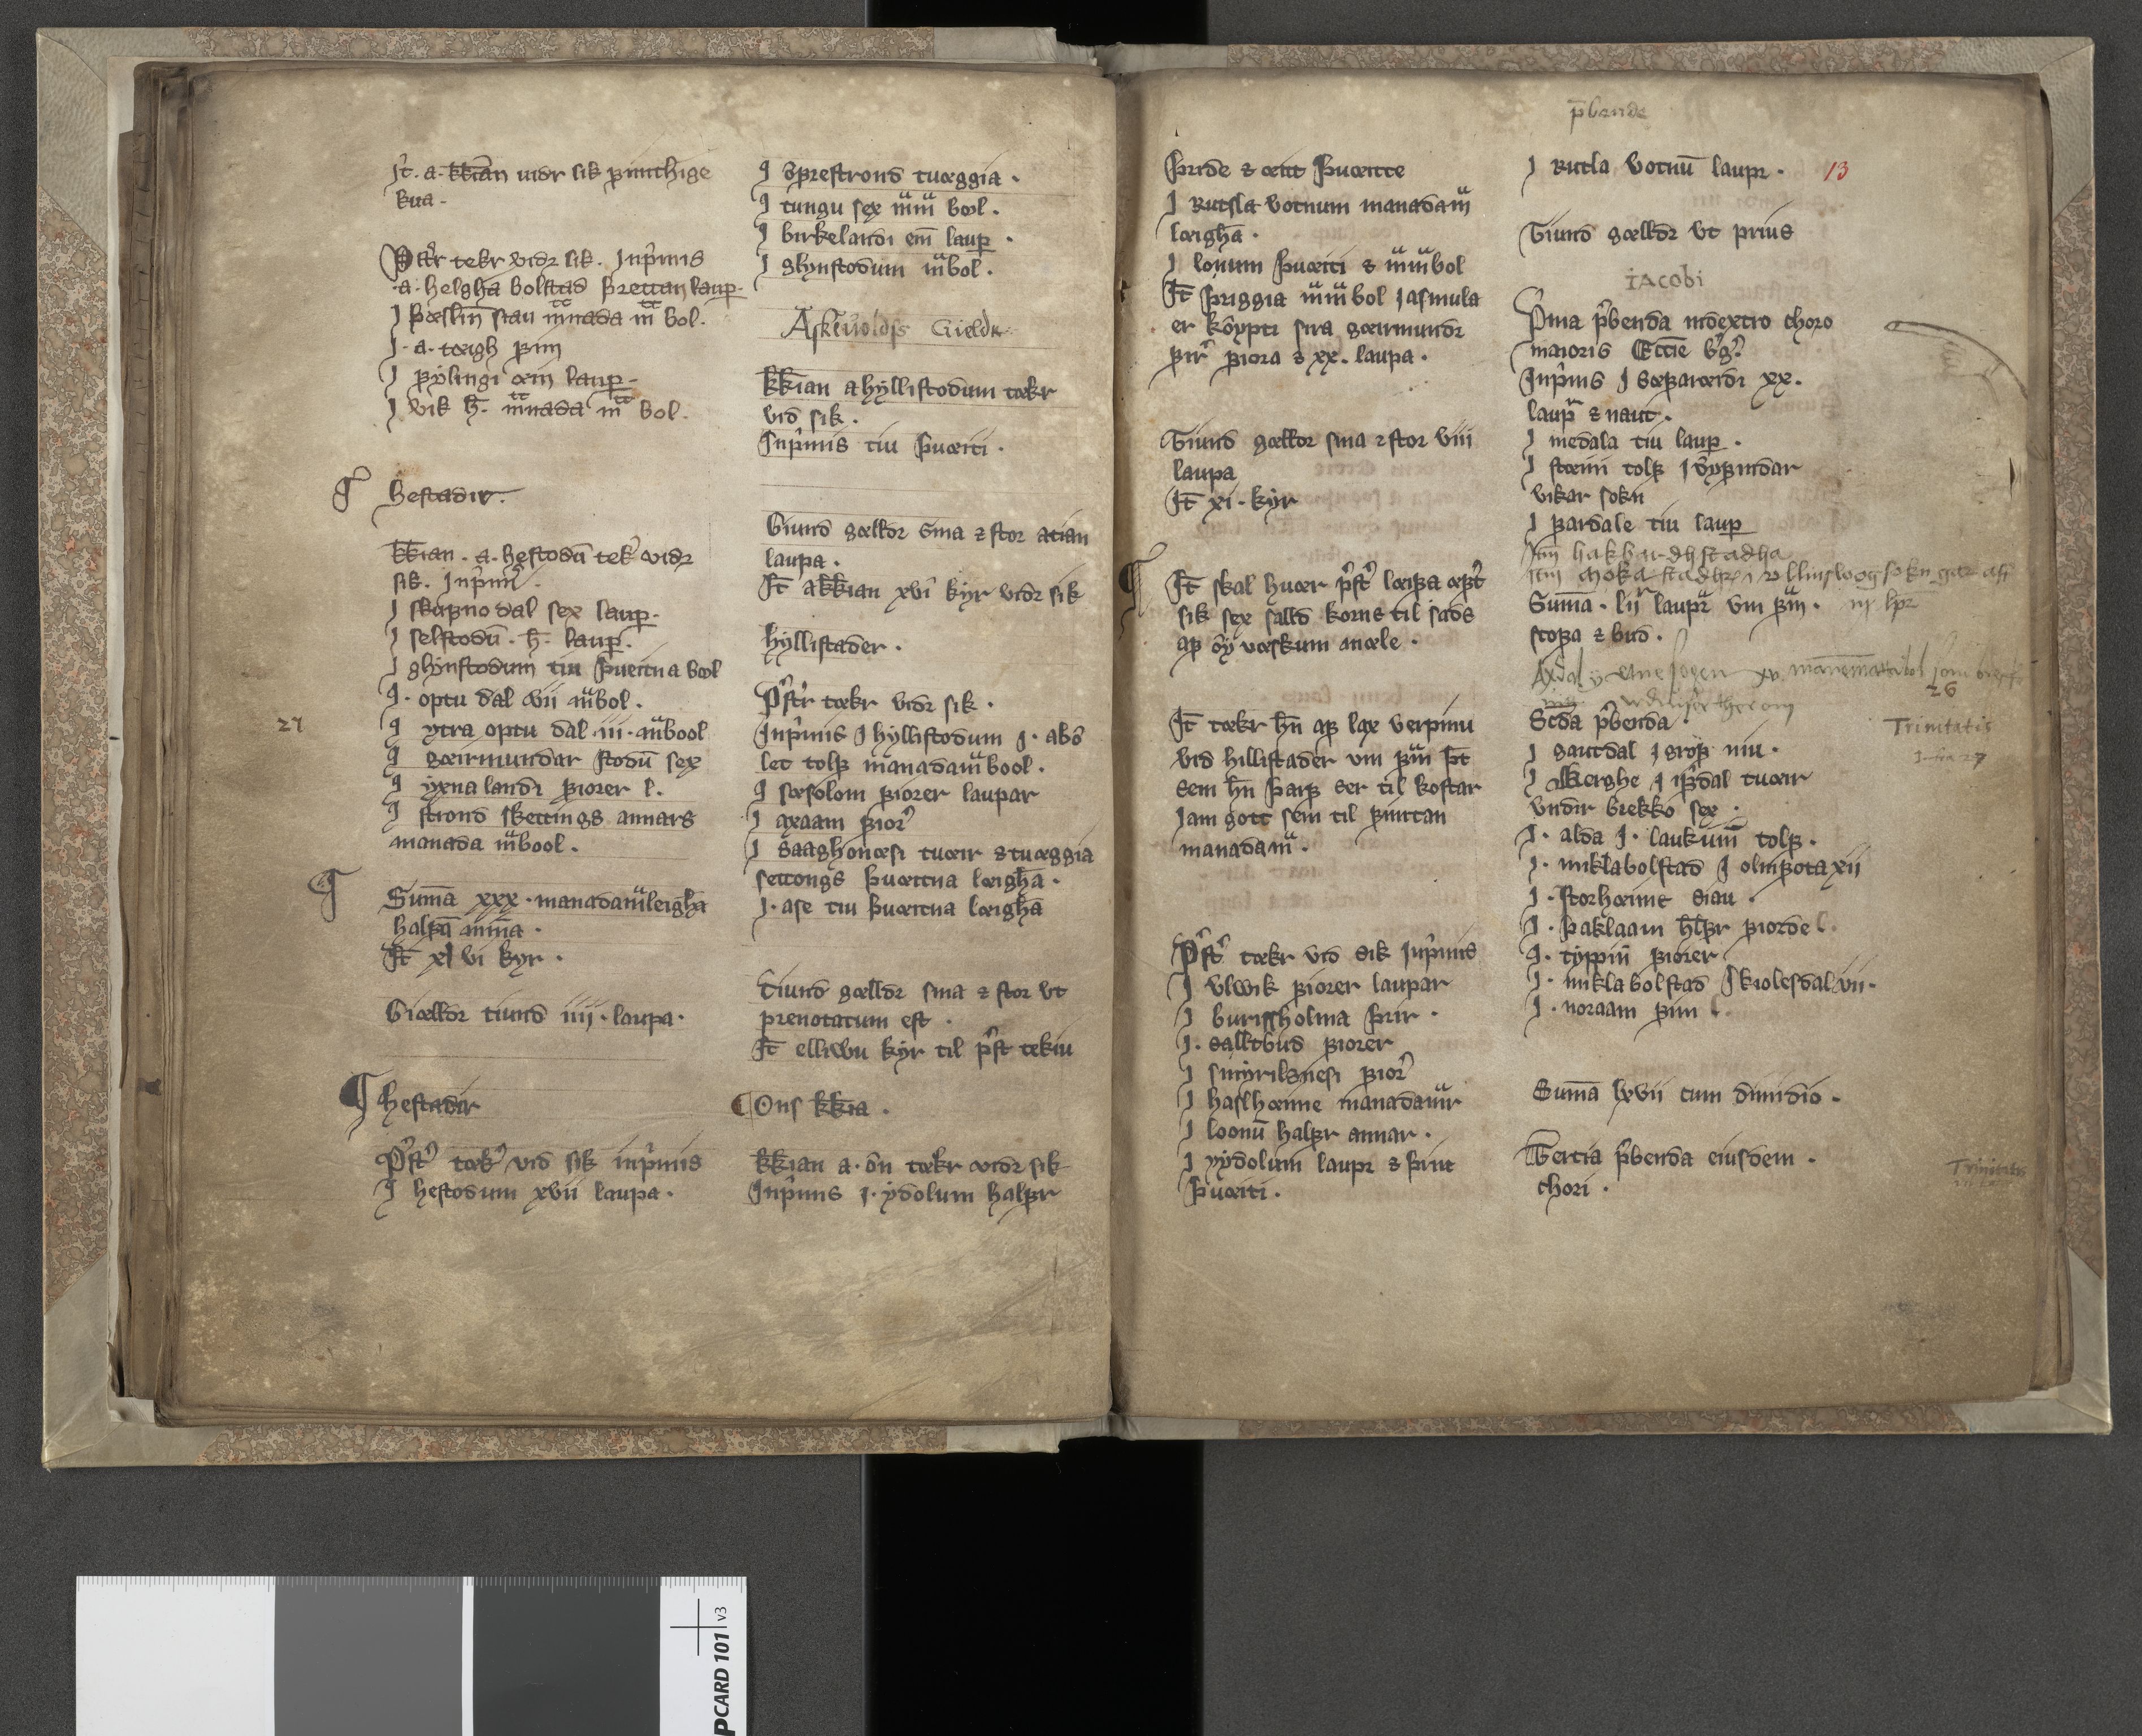 Jt̄. a. kk̄ian uidr sik fimthige
kua.
Pſtr tekr vidr sik. Inp̄mis
a. helgha bolstad þrettan laup.
J. a. tœigh fim
J fylingi œin laup.
J vik h̄. m̄nada m̄ bol.
hestadir.
kk̄ian. a. hestodū tekr vidr
sik. Inp̄mis.
J skafno dal sex laup.
J selstodū. h̄. laup.
J ghynstodum tiu þueitna bool
J. optu dal vii m̄bol.
J ytra optu dal .iii. m̄bool
27
J gœirmundar stodū sex
J yxna landi fiorer l.
J strond skettings annars
manada m̄bool.
Sum̄a xxx. manadam̄leigha
halfa an̄na.
Jt̄ xl vi kyr.
Giœlldr tiund iiij. laupa.
hestadir
P̄str tœkr vid sik inp̄mis
J hestodum xvii laupa.
J vprestrond tuœggia.
J tungu sex m̄m̄ bol.
J birkelandi ein laup.
J ghynstodum m̄bol.
Askeuolds Gield
kk̄ian a hyllistodum tœkr
vid sik.
Inp̄mis tiu þuœiti.
Tiund gœlldr sma ꝛ stor atian
laupa.
Jt̄ a kk̄ian xvi kyr vidr sik
hyllistader.
P̄str tœkr vidr sik.
Inp̄mis J hyllistodum J. abō
let tolf manadam̄bool.
J sœsolom fiorer laupar
J axaam fior
J saaghonœsi tuœir ꝛ tuœggia
settongs þuœitna lœigha.
J. ase tiu þuœitna lœigha
Tiund gœlldr sma ꝛ stor vt
prenotatum est.
Jt̄ elliwu kyr til p̄st tekiu
Ons kk̄ia.
kk̄ian a. ōn tœkr vidr sik
Inp̄mis J. ydolum halfr
p̄bende
þride ꝛ œitt þuœitte
J Rutsla votnum manadam̄
lœigha.
J lonum þuœiti ꝛ m̄m̄bol
Jt̄ þriggia m̄m̄bol J asmula
er kōypti sira gœirmundr
firr fiora ꝛ xx. laupa.
Tiund gœlldr sma ꝛ stor viii
laupa
Jt̄ xi. kyr
Jt̄ skal huœr p̄str lœifa œft
sik sex salld korns til sads
af ōy vœskum mœle.
Jt̄ tœkr h̄n af lax verpinu
vid hillistader vm fm̄ þt
sem h̄n þarf ser til kostar
Jam gott sem til fimtan
manadam̄.
P̄str tœkr vid sik Inp̄mis
J vlwik fiorer laupar
J burissholma þrir.
J. salltbud fiorer
J smyrilsnesi fior
J haslhœime manadam̄r
J loonū halfr annar.
J yydolum laupr ꝛ þriu
þuœiti.
J Rutla votnū laupr.
13
Tiund gœlldr vt prius
iacobi
Pma p̄benda in dextro choro
maioris Ecc̄ie b̄g.
Inp̄mis J sœfarœrdi xx.
laupr ꝛ naut.
J medala tiu laup.
J stœini tolf J vyfindar
vikar sokn
J fardale tiu laup
Itm̄ hakbardhstadha
Sum̄a. lij laupr vm fm̄. iij lpr
stofa ꝛ bud.
26
Scd̄a p̄benda.
Trinitatis
J gautdal J grof niu.
J Bierghe J ifr̄dal tuœir
vndir brekko sex.
J. alda J. laukum̄ tolf.
J. miklabolstad J olmfota xii
J. storhœime siau.
J. þaklaam h̄lfr fiorde l.
J. typpin̄ fiorer
J. mikla bolstad J kiolesdal vii.
J. noraam fim l.
Sum̄a lxvii cum dimidio.
Tertia p̄benda eiusdem.
Trinitatis
chori.
PCARD 101 v3